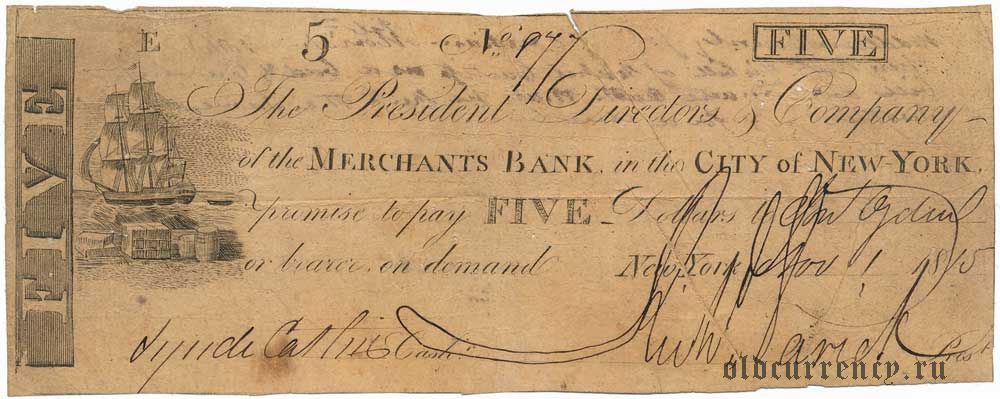 E 5 No. 977 FIVE
FIVE
The President Directors & Company
of the MERCHANTS BANK, in the CITY of NEW-YORK,
promise to pay FIVE Dollars to
or bearer, on demand New-York, Nov 1 1815
Lynde Catlin Cash.r Rich Varick Prest
oldcurrency.ru